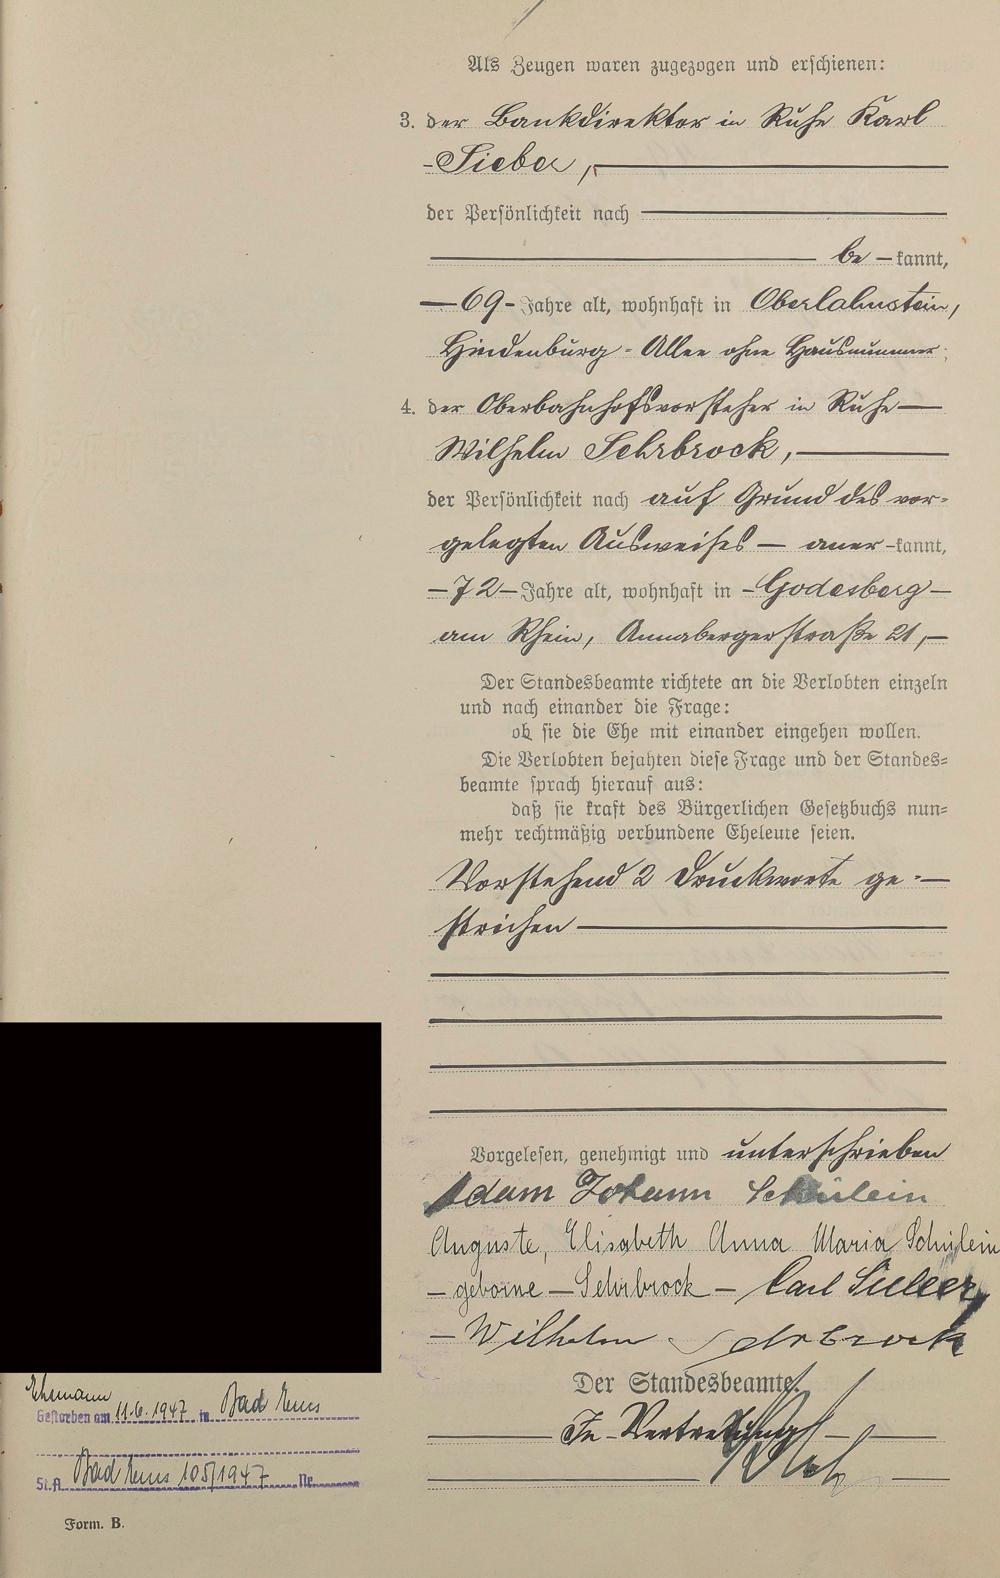 Als Zeugen waren zugezogen und erschienen:
3. der Bankdirektor in Ruhe Karl
Sieber,
der Persönlichkeit nach
be-kannt,
69 Jahre alt, wohnhaft in Oberlahnstein,
Hindenburg-Allee ohne Hausnummer
4. der Oberbahnhofsvorsteher in Ruhe
Wilhelm Sehrbrock,
der Persönlichkeit nach auf Grund des vor-
gelegten Ausweises aner-kannt,
72 Jahre alt, wohnhaft in Godesberg
am Rhein, Annabergerstraße 21,
Der Standesbeamte richtete an die Verlobten einzeln
und nach einander die Frage:
ob sie die Ehe mit einander eingehen wollen.
Die Verlobten bejahten diese Frage und der Standes-
beamte sprach hierauf aus:
daß sie kraft des Bürgerlichen Gesetzbuchs nun-
mehr rechtmäßig verbundene Eheleute seien.
Vorstehend 2 Druckworte ge-
strichen
Vorgelesen, genehmigt und unterschrieben
Adam Johann Schülein
Auguste, Elisabeth Anna Maria Schülein
geborne Sehrbrock Carl Sieber,
Wilhelm Sehrbrock
Der Standesbeamte.
In Vertretung
Ehemann
Gestorben am 11.6.1947 in Bad Ems
St.A. Bad Ems 105/1947 Nr.
Form. B.